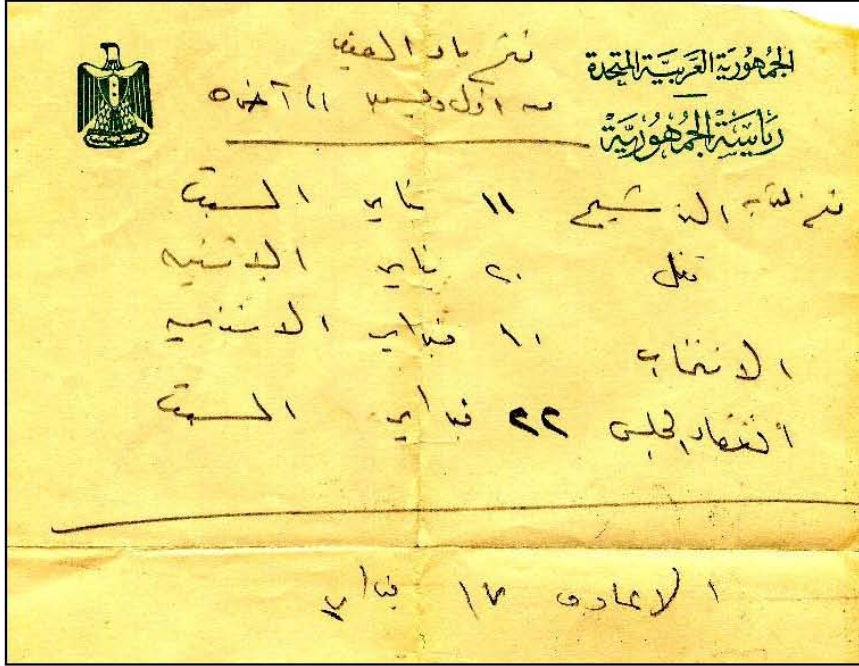 الجُمهُوريَة العَربيَة المتحدة
رياسَة الجُمهُوريَة
فتح باب القيد
من اول ديسمبر الى آخره
فتح باب الترشيح ١١ يناير السبت
قفل ٢٠ يناير الاثنين
الانتخاب ١٠ فبراير الاثنين
انعقاد المجلس ٢٢ فبراير السبت
الاعادة فبراير